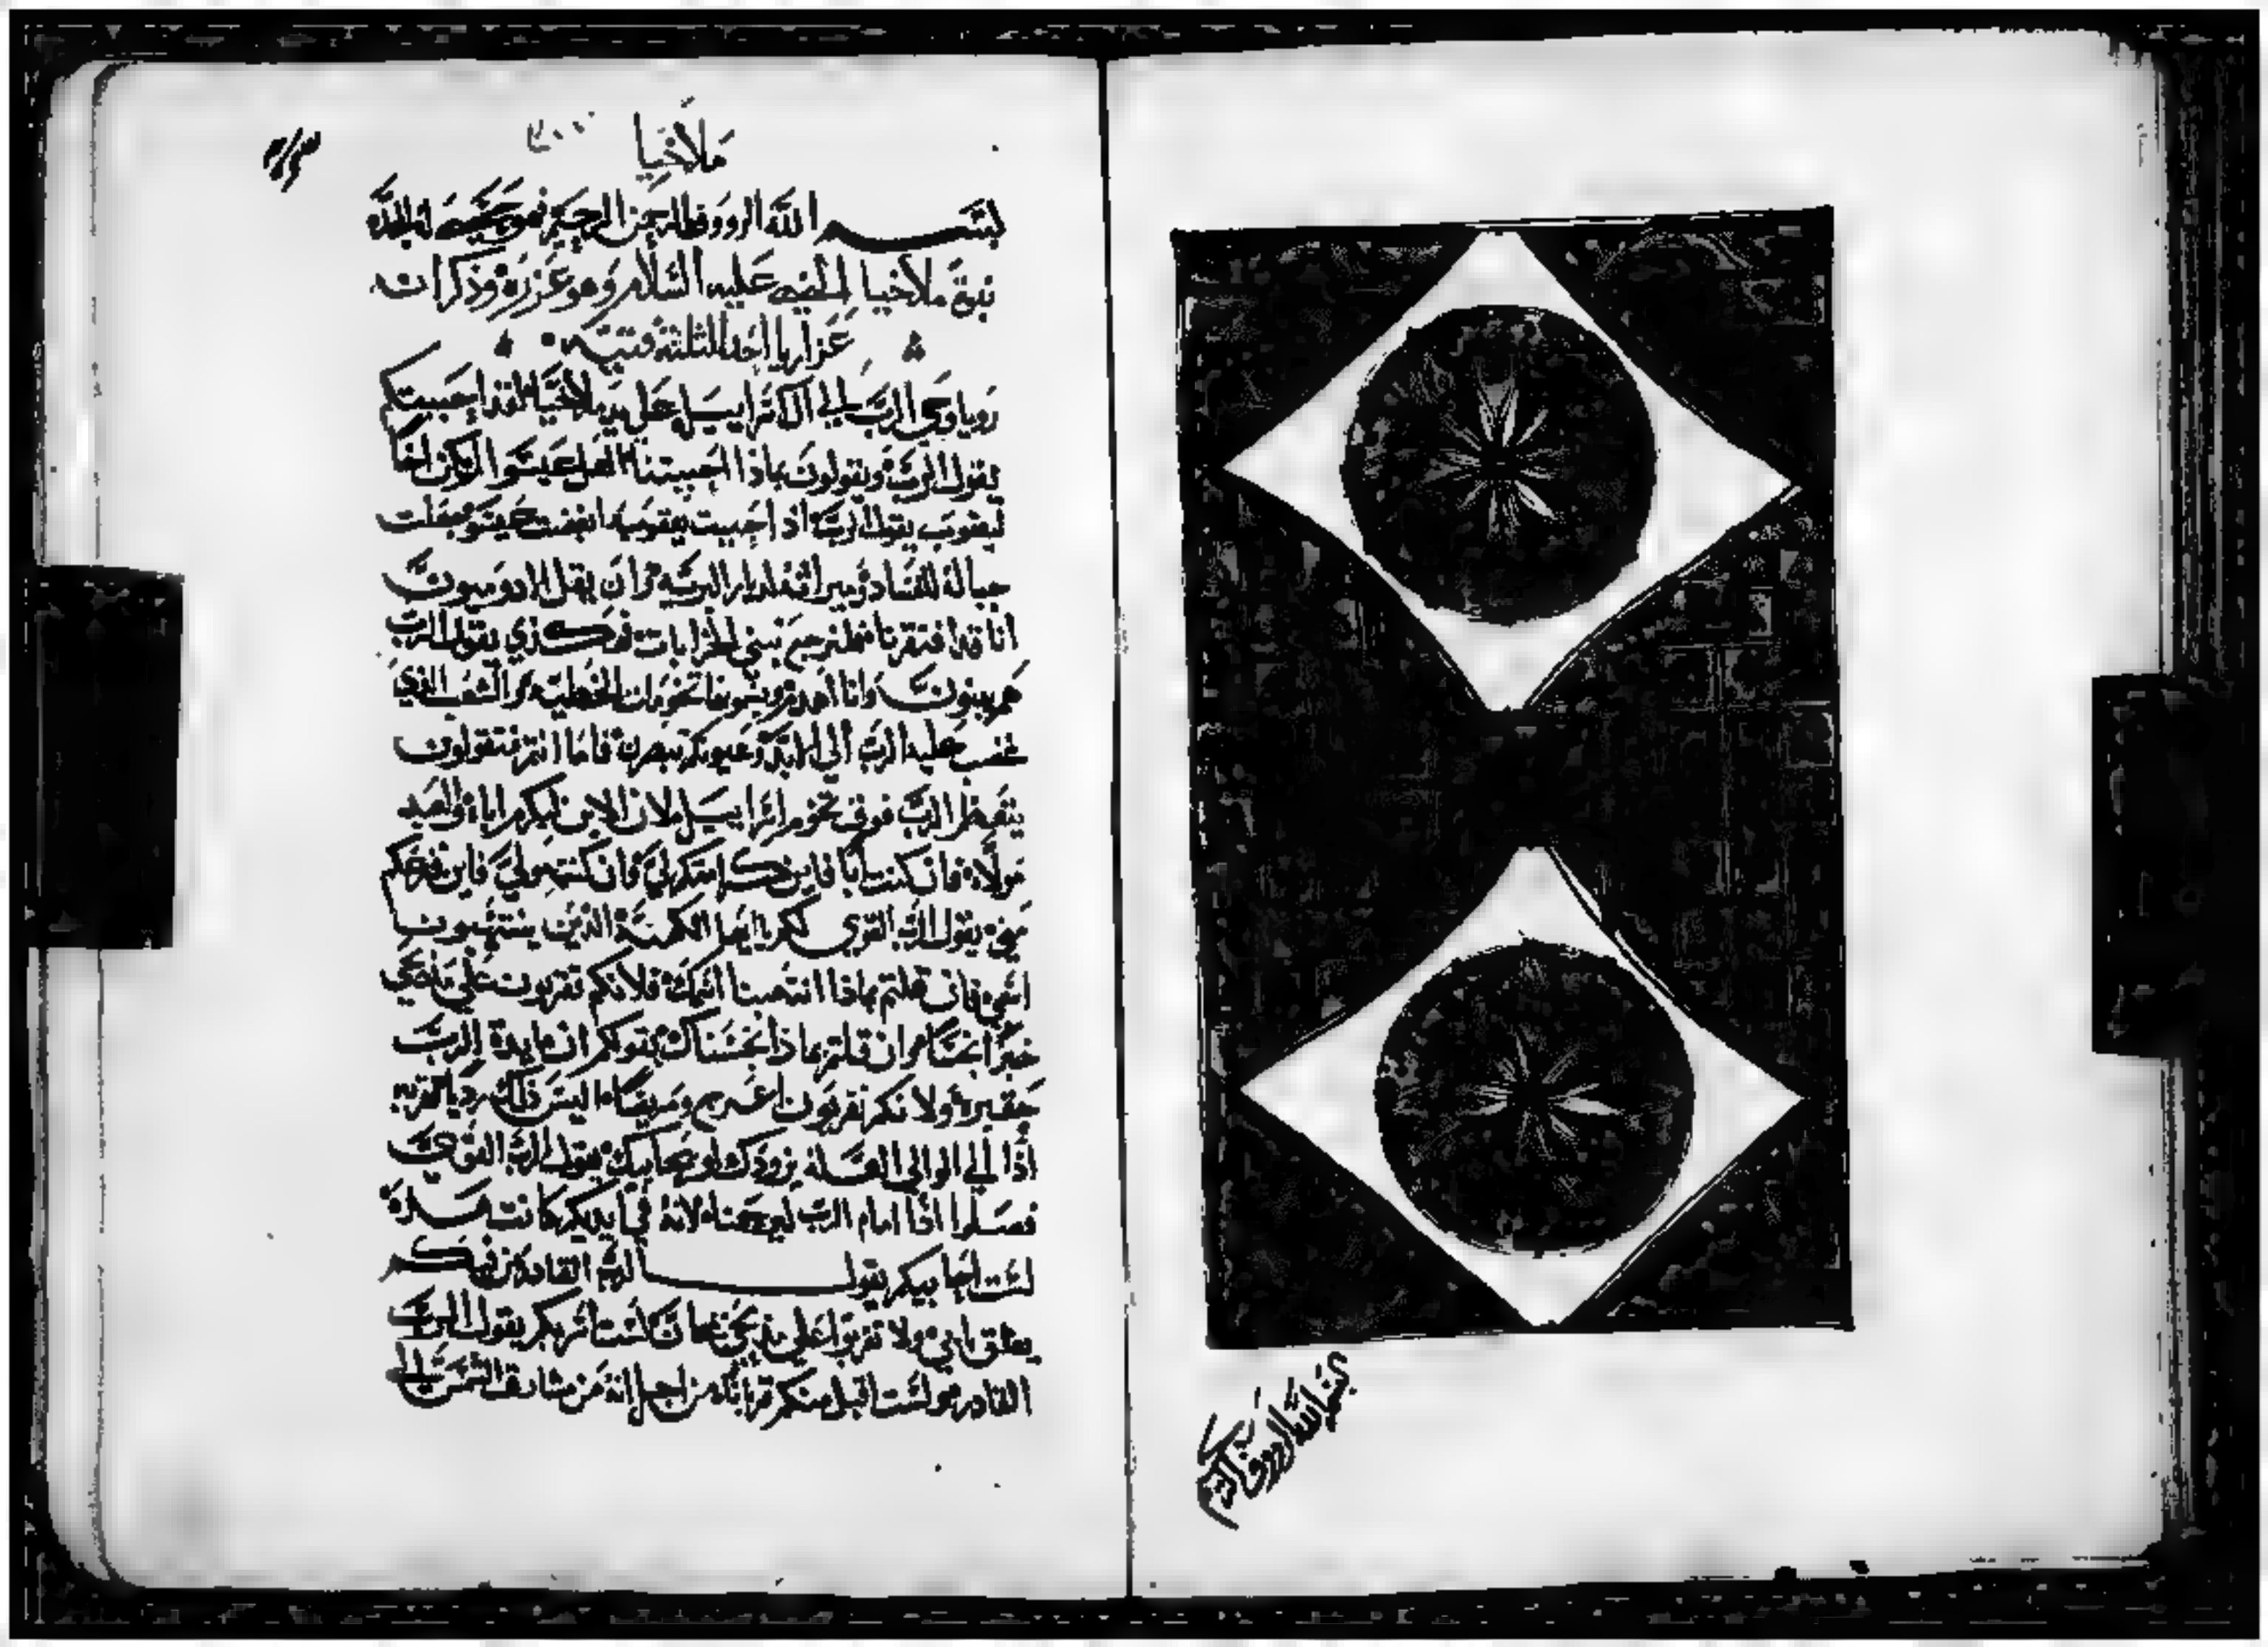 ملاخيا
بسم الله الرووف الرحمن الرحيم
نبوة ملاخيا النبي عليه السلام وهو عزره وذكر ان
عزاريا احد الثلثة فتيه
رويا وحي الرب الي ال اسراييل علي يد ملاخيا لقد احببتكم
يقول الرب ويقولون بماذا احببتنا العل عيسوا لم يكن اخا
ليعقوب يقول الرب اذ احببت يعقوب ابغضت عيسو وجعلت
جباله للفساد وميراثه لديار البريه وان يقل ادوميون
انا قد افتقرنا فلنرجع نبني الخرابات فهكذي يقول الرب
هم يبنون وانا اهدم ويسمونها تخومات الخطيه والشعب الذي
غضب عليه الرب الي الابد وعيونكم تبصرن فاما انتم فتقولون
يتعظم الرب فوق تخوم اسراييل لان الابن يكرم اباه والعبد
مولاه فان كنت ابا فاين كرامتكم لي وان كنت مولي فاين فزعكم
مني يقول الرب القوي لكم يا ايها الكهنة الذين يستهينون
اسمي فان قلتم بماذا اسمك فلانكم تقربون علي مذبحي
خبزا نجسا وان قلتم بماذا نجسناك بقولكم ان مايدة الرب
حقيره ولانكم تقربون اعرج ومريضا اليس ذلك رديا قربه
اذا الي الوالي لعله يزودك او يحابيك يقول الرب القوي
فصلوا اذا امام الرب ليرحمنا لانه في ايديكم كانت هذه
لست احابيكم يقول الرب القادر من فيكم
يغلق بابي ولا تقربوا علي مذبحي مجانا لست اسر بكم يقول الرب
القادر ولست اقبل منكم قربانا من اجل انه من مشارق الشمس الي
بسم الله الرووف الرحيم